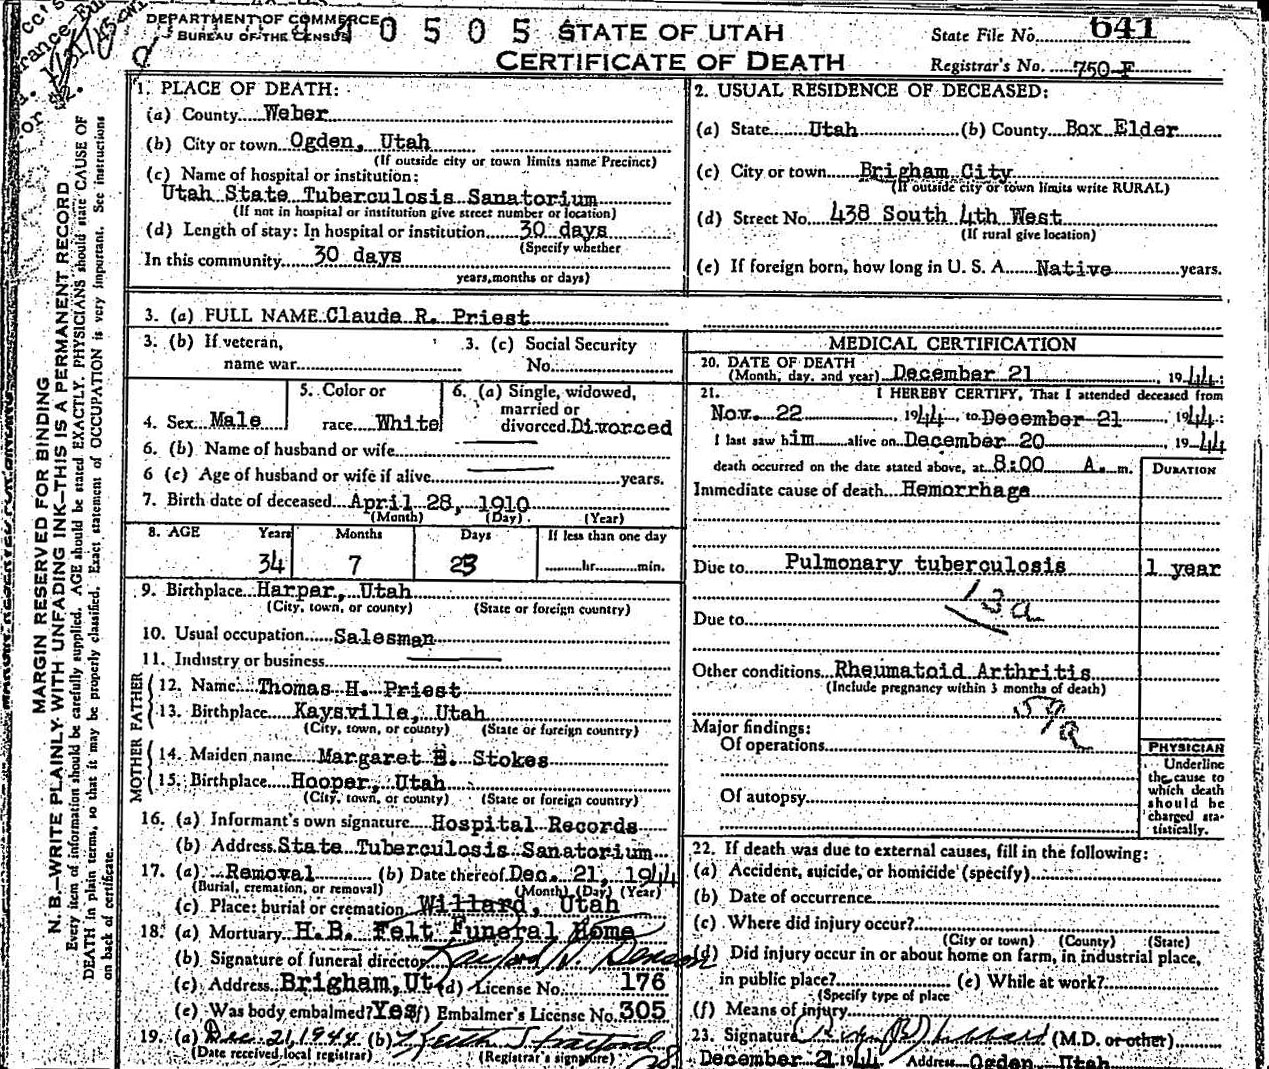 DEPARTMENT OF COMMERCE
BUREAU OF THE CENSUS
0 5 0 5 STATE OF UTAH
CERTIFICATE OF DEATH
State File No. 641
Registrar's No. 750-F
MARGIN RESERVED FOR BINDING
N. B.—WRITE PLAINLY WITH UNFADING INK—THIS IS A PERMANENT RECORD
Every item of information should be carefully supplied. AGE should be stated EXACTLY. PHYSICIANS should state CAUSE OF
DEATH in plain terms, so that it may be properly classified. Exact statement of OCCUPATION is very important. See instructions
on back of certificate.
1. PLACE OF DEATH:
(a) County Weber
(b) City or town Ogden, Utah
(If outside city or town limits name Precinct)
(c) Name of hospital or institution:
Utah State Tuberculosis Sanatorium
(If not in hospital or institution give street number or location)
(d) Length of stay: In hospital or institution 30 days
(Specify whether
In this community 30 days
years, months or days)
2. USUAL RESIDENCE OF DECEASED:
(a) State Utah (b) County Box Elder
(c) City or town Brigham City
(If outside city or town limits write RURAL)
(d) Street No. 438 South 4th West
(If rural give location)
(e) If foreign born, how long in U. S. A. Native years.
3. (a) FULL NAME Claude R. Priest
3. (b) If veteran,
name war
3. (c) Social Security
No.
4. Sex Male
5. Color or
race White
6. (a) Single, widowed,
married or
divorced Divorced
6. (b) Name of husband or wife
6 (c) Age of husband or wife if alive years.
7. Birth date of deceased April 28, 1910
(Month) (Day) (Year)
8. AGE Years Months Days If less than one day
34 7 23 hr. min.
9. Birthplace Harper, Utah
(City, town, or county) (State or foreign country)
10. Usual occupation Salesman
11. Industry or business
FATHER
12. Name Thomas H. Priest
13. Birthplace Kaysville, Utah
(City, town, or county) (State or foreign country)
MOTHER
14. Maiden name Margaret E. Stokes
15. Birthplace Hooper, Utah
(City, town, or county) (State or foreign country)
16. (a) Informant's own signature Hospital Records
(b) Address State Tuberculosis Sanatorium
17. (a) Removal (b) Date thereof Dec. 21, 1944
(Burial, cremation, or removal) (Month) (Day) (Year)
(c) Place: burial or cremation Willard, Utah
18. (a) Mortuary H.B. Felt Funeral Home
(b) Signature of funeral director
(c) Address Brigham, Ut. (d) License No. 176
(e) Was body embalmed? Yes (f) Embalmer's License No. 305
19. (a) Dec 21, 1944 (b) Keith Stratford
(Date received local registrar) (Registrar's signature)
MEDICAL CERTIFICATION
20. DATE OF DEATH
(Month, day, and year) December 21, 1944
21. I HEREBY CERTIFY, That I attended deceased from
Nov. 22 1944 to December 21, 1944
I last saw him alive on December 20 1944
death occurred on the date stated above, at 8:00 A. m.
DURATION
Immediate cause of death Hemorrhage
Due to Pulmonary tuberculosis 1 year
13a
Due to
Other conditions Rheumatoid Arthritis
(Include pregnancy within 3 months of death)
59a
Major findings:
Of operations
Of autopsy
PHYSICIAN
Underline
the cause to
which death
should be
charged sta-
tistically.
22. If death was due to external causes, fill in the following:
(a) Accident, suicide, or homicide (specify)
(b) Date of occurrence
(c) Where did injury occur?
(City or town) (County) (State)
(d) Did injury occur in or about home on farm, in industrial place,
in public place? (e) While at work?
(Specify type of place
(f) Means of injury
23. Signature (M.D. or other)
December 21 1944 Address Ogden Utah